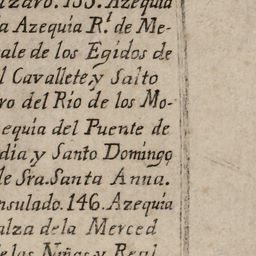 lzaro. 135. Azequia
a Azequia R.l de Me-
ale de los Egidos de
l Cavallete, y Salto
ro del Rio de los Mo-
equia del Puente de
dia y Santo Domingo
de Sra. Santa Anna.
nsulado. 146. Azequia
alza de la Merced
de las Niñas y Real